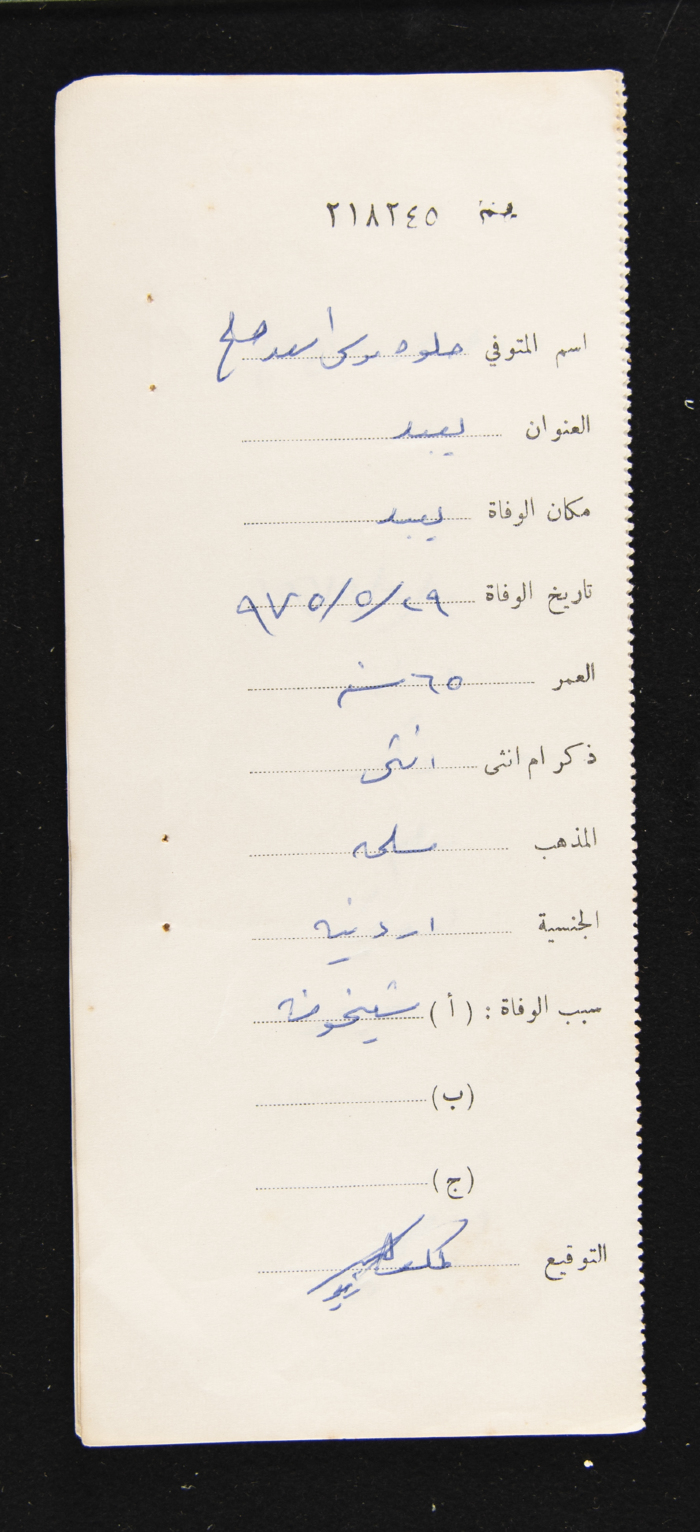 نمرة ٢١٨٢٤٥
اسم المتوفي حلوه موسى اسعد صلح
العنوان يعبد
مكان الوفاة يعبد
تاريخ الوفاة ٢٩/٥/٩٧٥
العمر ٦٥ سنه
ذكر ام انثى انثى
المذهب مسلمه
الجنسية اردنيه
سبب الوفاة : (أ) شيخوخه
(ب)
(ج)
التوقيع